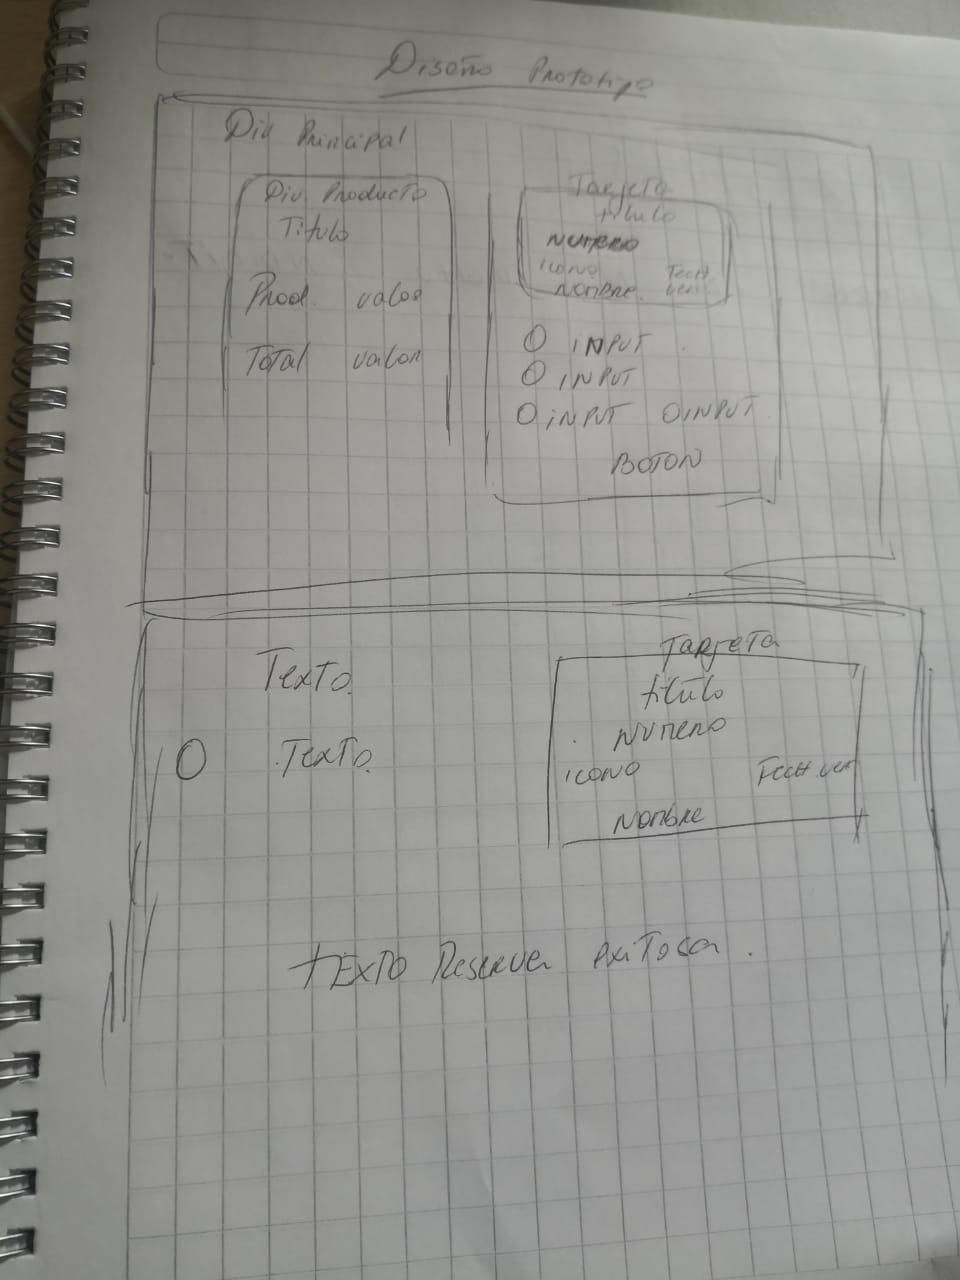 Diseño Prototipo
Div Principal
Div Producto
Titulo
Prod. valor
Total valor
Tarjeta
titulo
Numero
icono Fech.
Nombre. ven
INPUT
INPUT
INPUT INPUT
BOTON
Texto.
Texto.
Tarjeta
titulo
Numero
icono Fech.ven
Nombre
TEXTO Reserva exitosa.